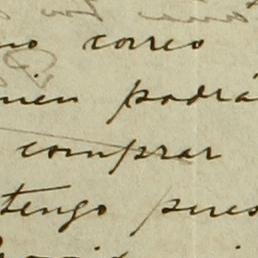 no correo
uien podrá
comprar
tengo pues